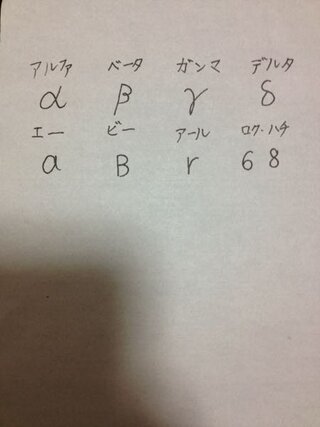 アルファ ベータ ガンマ デルタ
α β γ δ
エー ビー アール ロク・ハチ
a B r 6 8